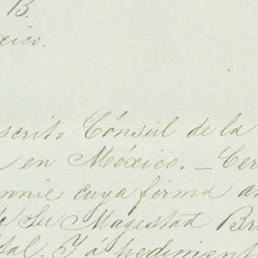 B.
xico.
scrito Cónsul de la
en México. _ Cer
nnie cuya firma an
e Su Magestad Bri
tal. Y á pediment